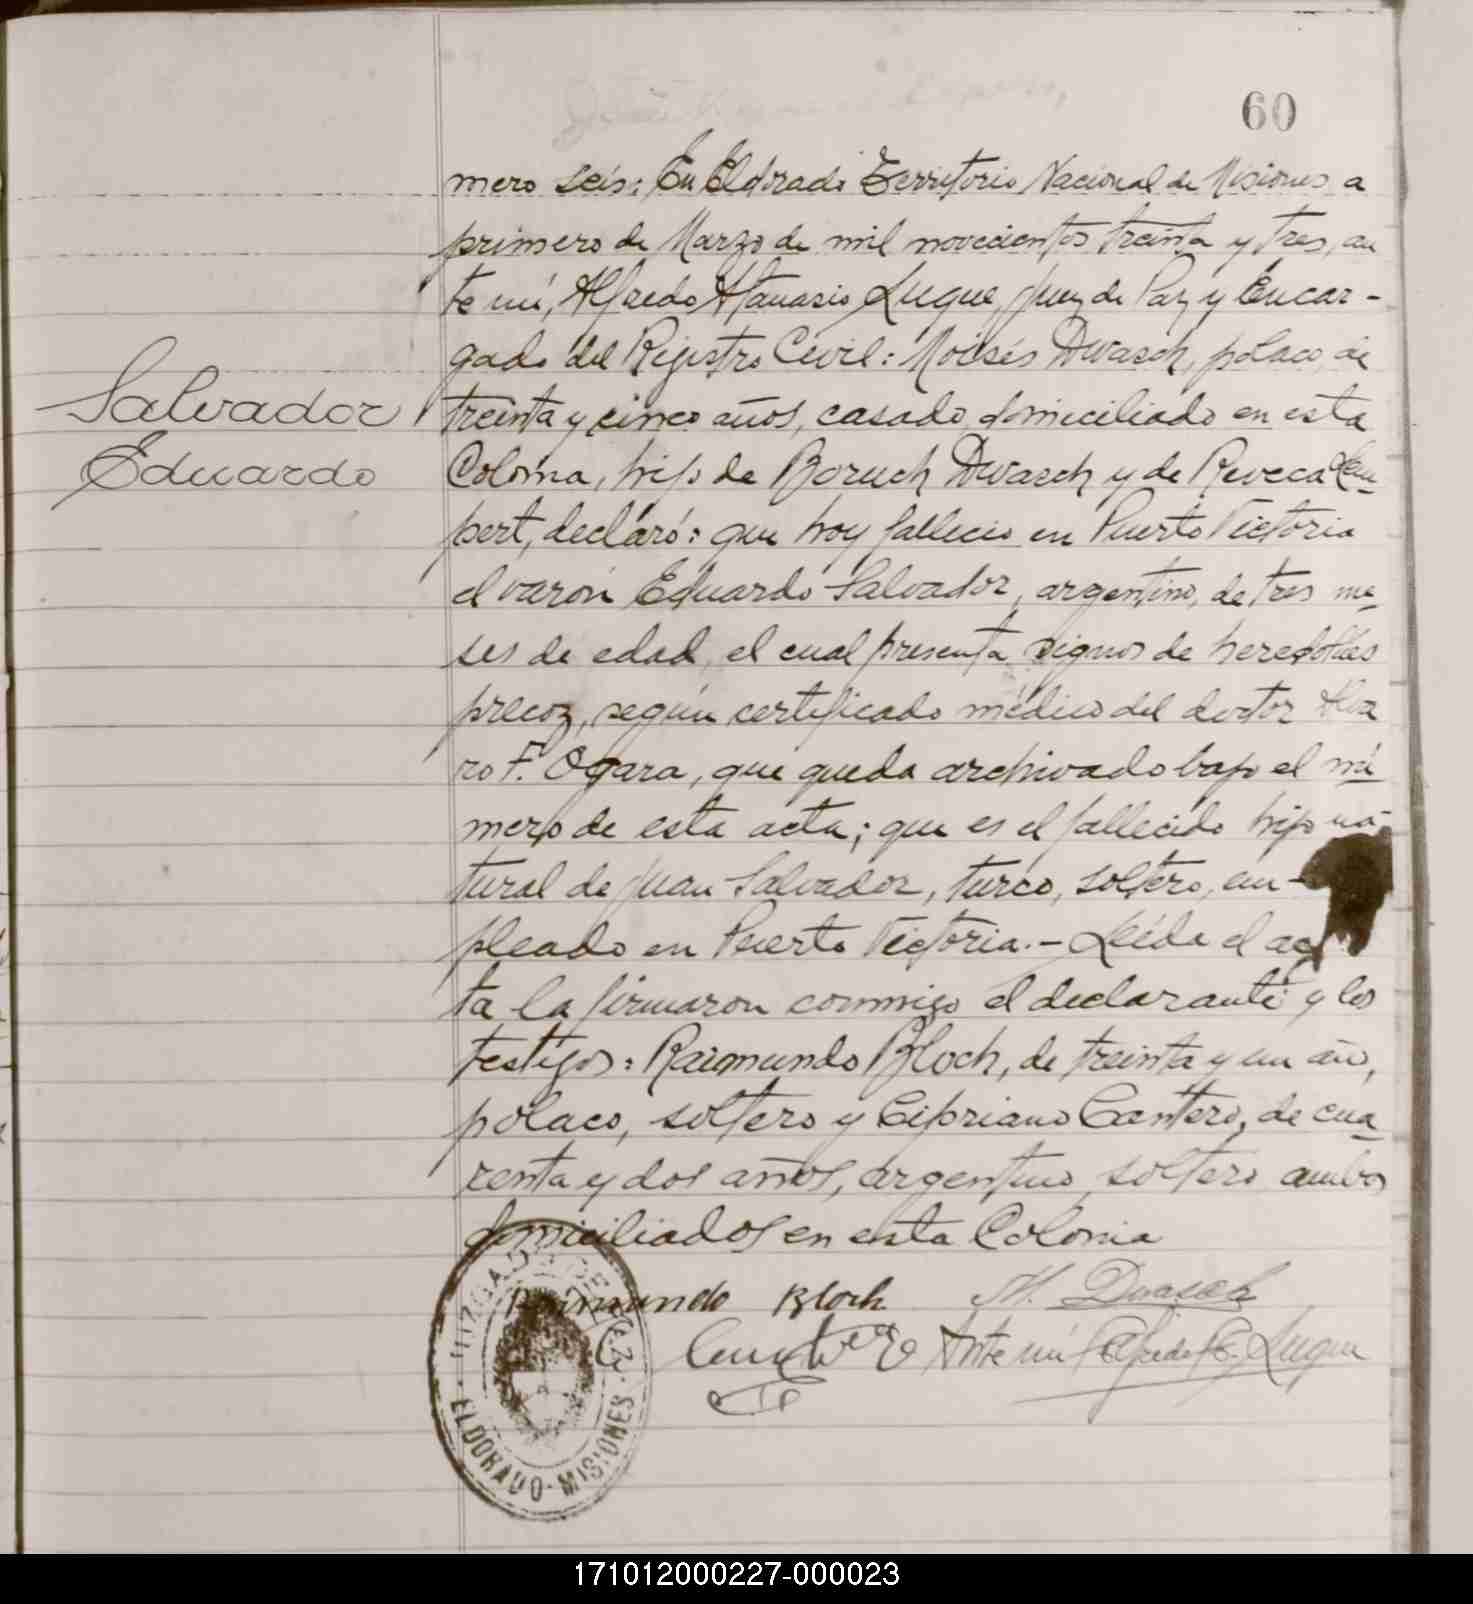 60
mero seis: En Eldorado Territorio Nacional de Misiones a
primero de Marzo de mil novecientos treinta y tres, an
te mí, Alfredo Atanasio Luque, Juez de Paz y Encar-
gado del Registro Civil: Moisés Dwasch, polaco, de
Salvador
Eduardo
treinta y cinco años, casado, domiciliado en esta
Colonia, hijo de Boruch Dwasch y de Reveca Lem-
pert, declaró: que hoy falleció en Puerto Victoria
el varón Eduardo Salvador, argentino, de tres me-
ses de edad, el cual presenta signos de heredolúes
precoz, según certificado médico del doctor Alva
ro F. Ogara, que queda archivado bajo el nú-
mero de esta acta; que es el fallecido hijo na-
tural de Juan Salvador, turco, soltero, em-
pleado en Puerto Victoria.- Leída el ac
ta la firmaron conmigo el declarante y los
testigos: Raimundo Bloch, de treinta y un año,
polaco, soltero y Cipriano Cantero, de cua-
renta y dos años, argentino, soltero ambos
domiciliados en esta Colonia
Raimundo Bloch M. Dwasch
Ante mí Alfredo A. Luque
JUZGADO DE PAZ
ELDORADO - MISIONES
171012000227-000023